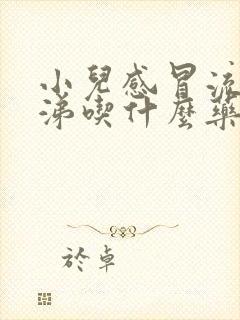 小兒感冒流
涕喫什麼藥
於卓